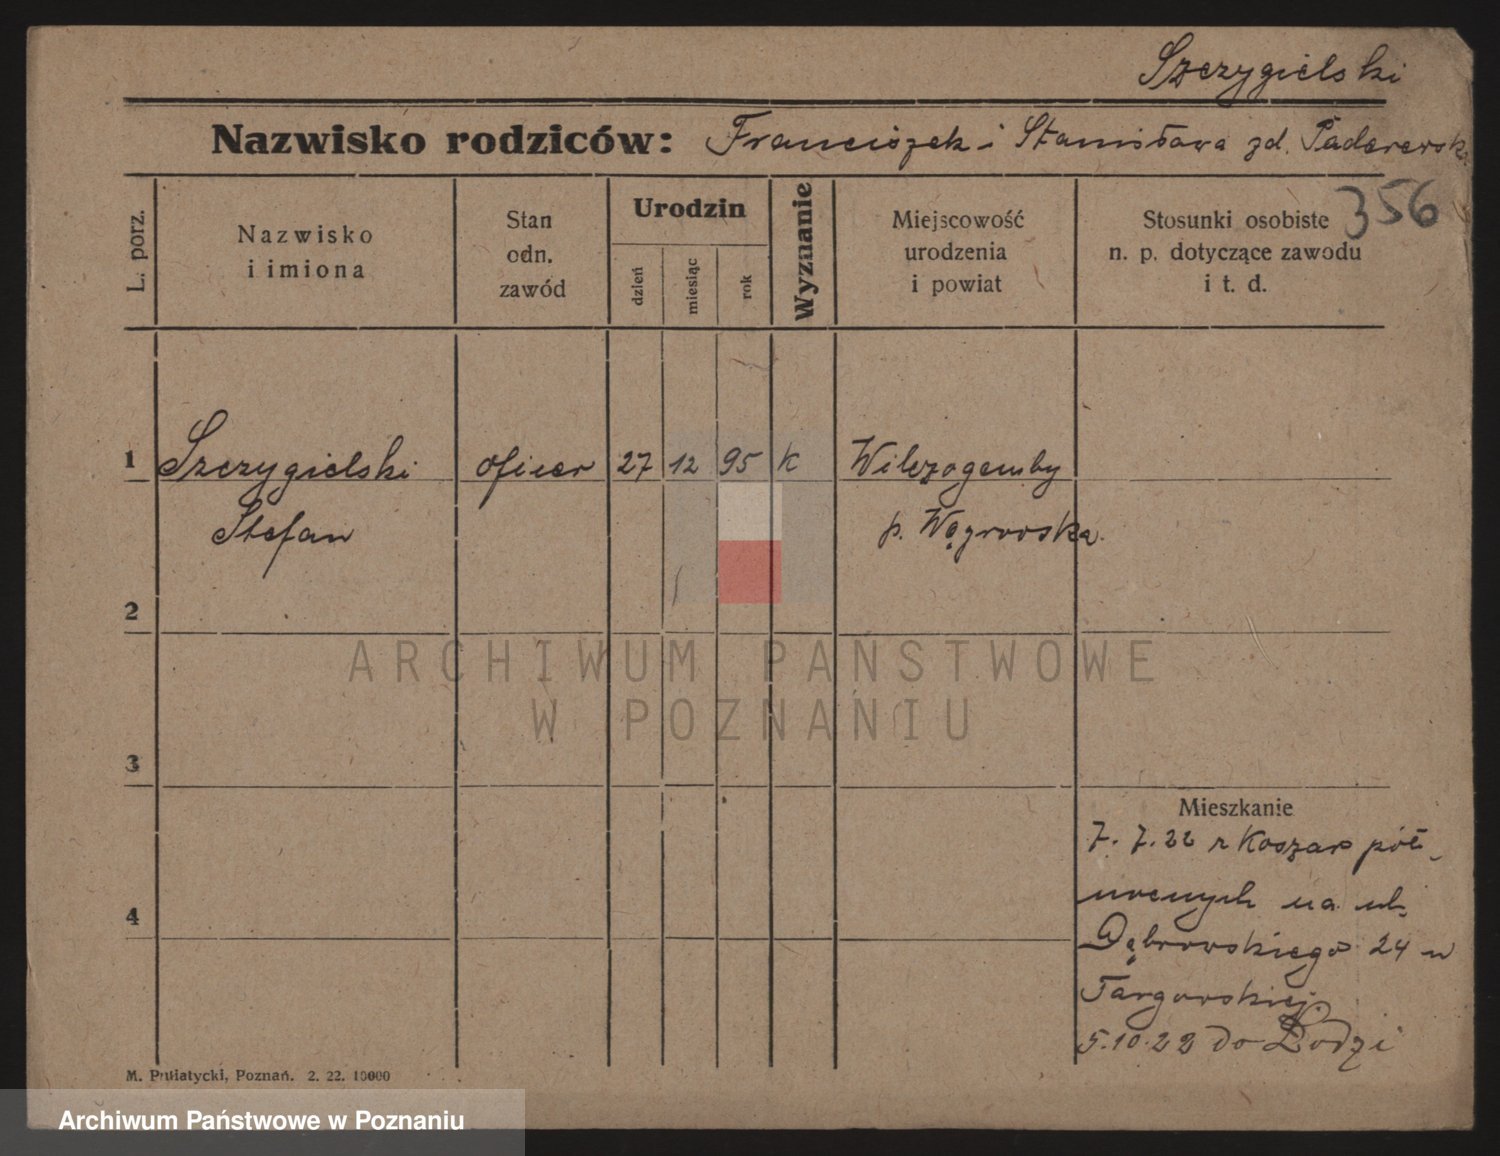 Szczygielski
Nazwisko rodziców: Franciszek i Stanisława zd. Paderewska
356
L. porz.
Nazwisko
i imiona
Stan
odn.
zawód
Urodzin
dzień
miesiąc
rok
Wyznanie
Miejscowość
urodzenia
i powiat
Stosunki osobiste
n. p. dotyczące zawodu
i t. d.
1 Szczygielski oficer 27 12 95 K Wilczogemby
Stefan p. Węgrowska.
2
ARCHIWUM PAŃSTWOWE
W POZNANIU
3
Mieszkanie
7. 7. 22 z Koszar pół-
nocnych na ul.
4
Dąbrowskiego 24 u
Targowskiej.
5.10.22 do Łodzi
M. Putiatycki, Poznań. 2. 22. 10000
Archiwum Państwowe w Poznaniu